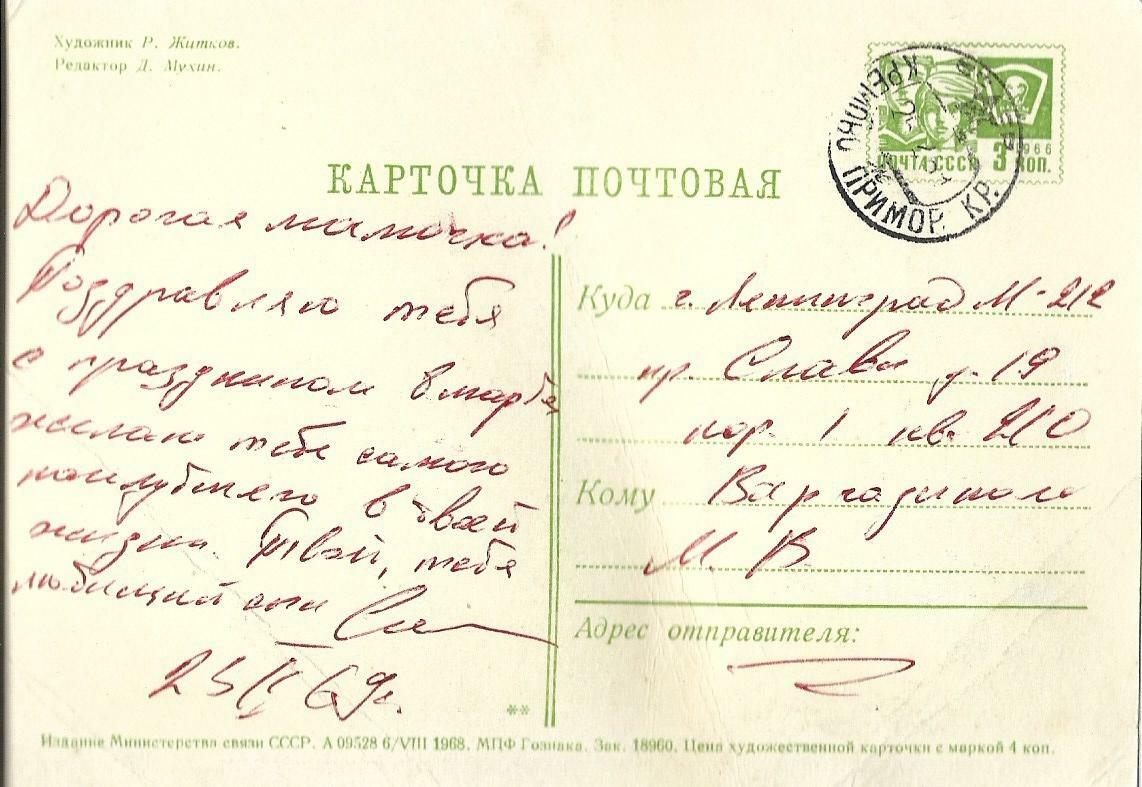 Художник Р. Житков.
Редактор Д. Мухин.
КРЕМОВО ПРИМОР. КР.
ПОЧТА СССР 3 КОП.
1966
КАРТОЧКА ПОЧТОВАЯ
Дорогая мамочка!
Поздравляю тебя
с праздником 8 марта
желаю тебе самого
наилучшего в твоей
жизни. Твой, тебя
любящий сын
25/II 69г.
Куда г. Ленинград М-212
пр. Славы д. 19
кор. 1 кв. 210
Кому
М. В.
Адрес отправителя:
**
Издание Министерства связи СССР. А 09528 6/VIII 1968. МПФ Гознака. Зак. 18960. Цена художественной карточки с маркой 4 коп.